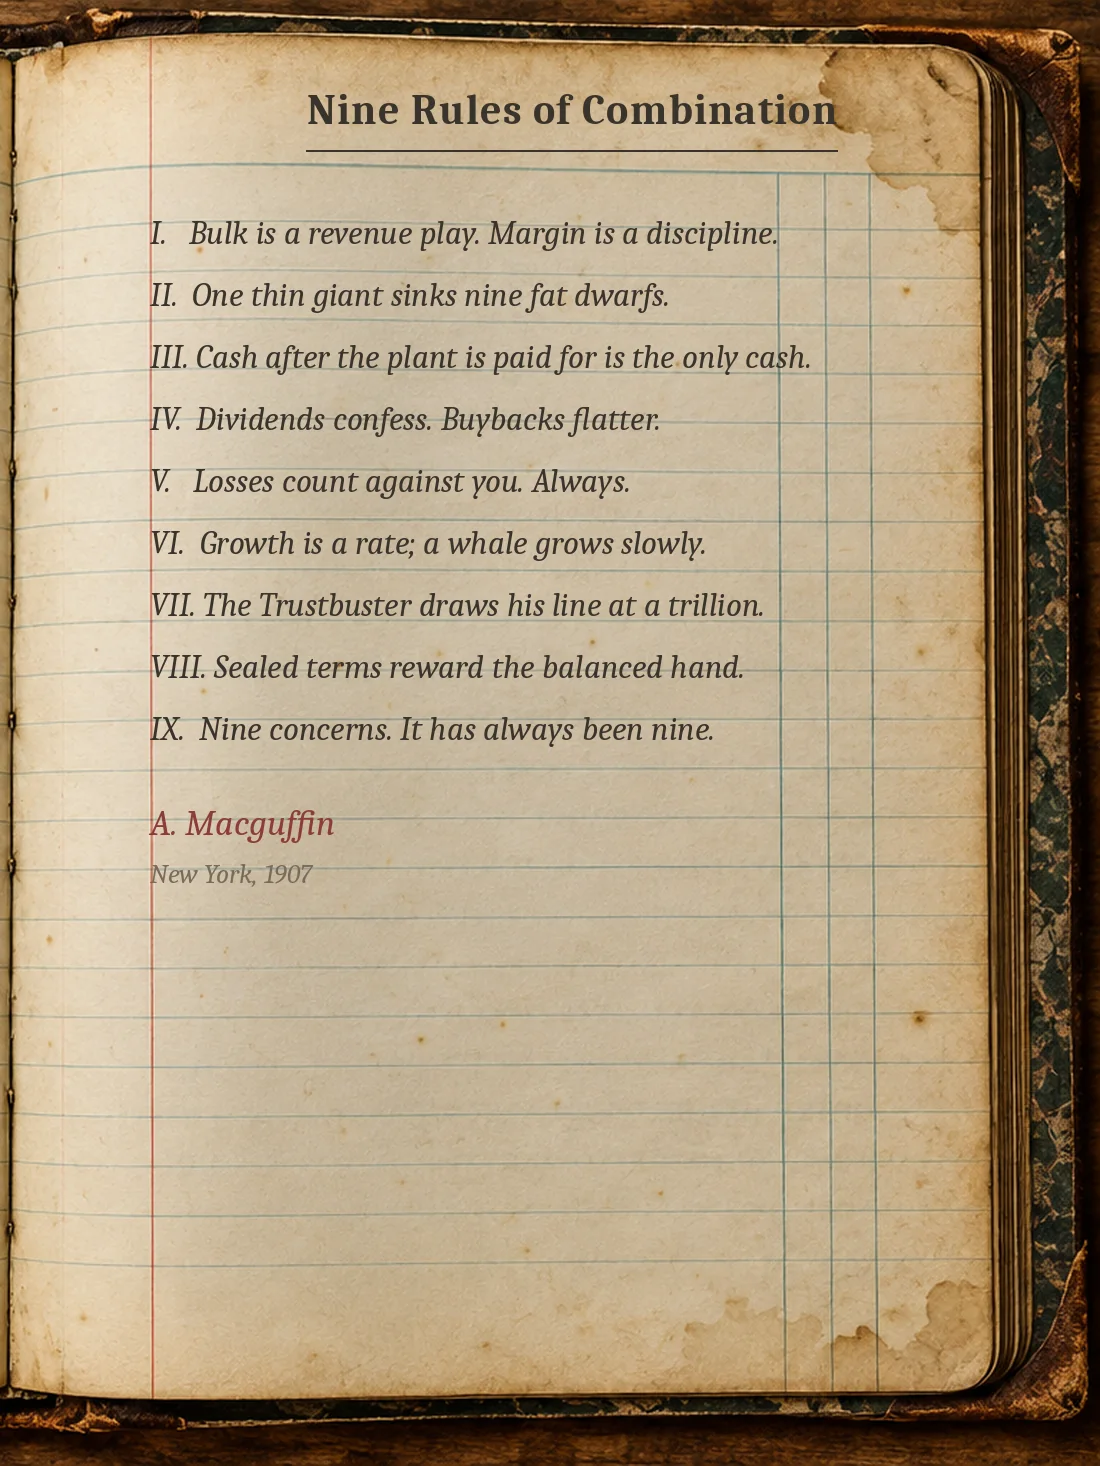 Nine Rules of Combination
I. Bulk is a revenue play. Margin is a discipline.
II. One thin giant sinks nine fat dwarfs.
III. Cash after the plant is paid for is the only cash.
IV. Dividends confess. Buybacks flatter.
V. Losses count against you. Always.
VI. Growth is a rate; a whale grows slowly.
VII. The Trustbuster draws his line at a trillion.
VIII. Sealed terms reward the balanced hand.
IX. Nine concerns. It has always been nine.
A. Macguffin
New York, 1907